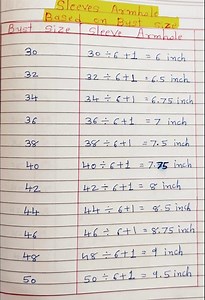 Sleeves Armhole
Based on Bust size
Bust Size Sleeve Armhole
30 30÷6+1 = 6 inch
32 32÷6+1 = 6.5 inch
34 34÷6+1 = 6.75 inch
36 36÷6+1 = 7 inch
38 38÷6+1 = 7.5 inch
40 40÷6+1 = 7.75 inch
42 42÷6+1 = 8 inch
44 44÷6+1 = 8.5 inch
46 46÷6+1 = 8.75 inch
48 48÷6+1 = 9 inch
50 50÷6+1 = 9.5 inch